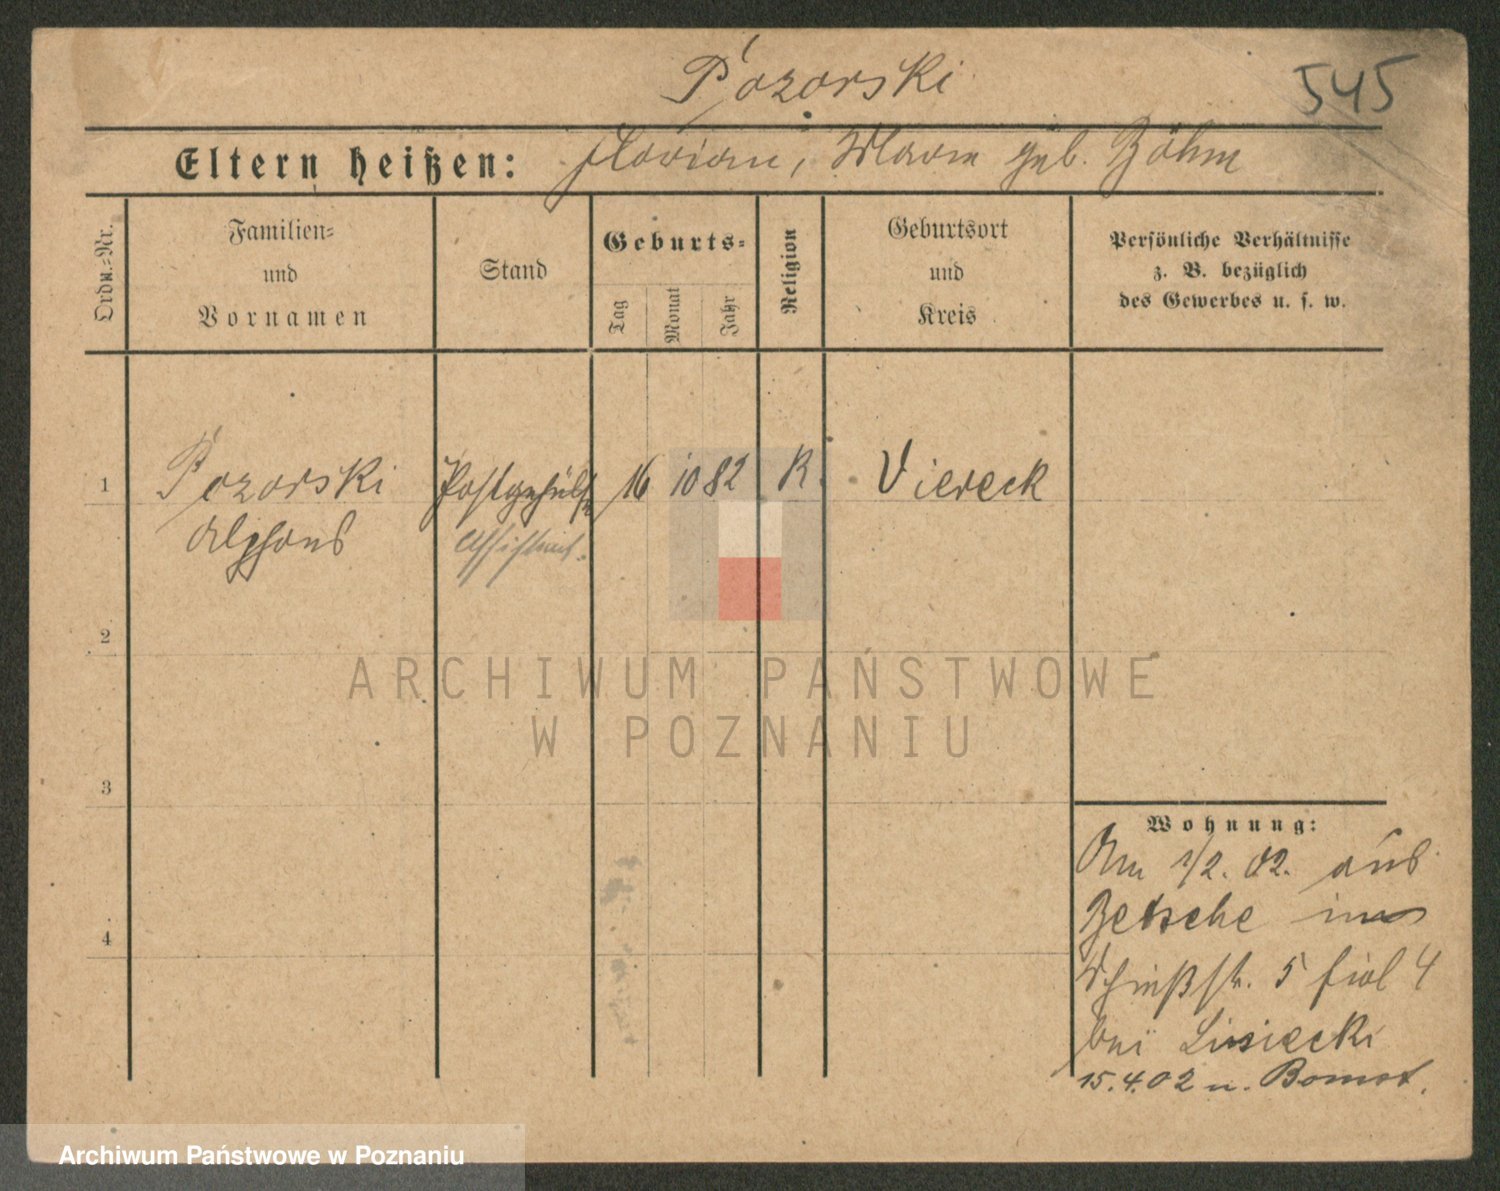 Pozorski
545
Eltern heißen: Florian, Marie geb. Böhm
Ordn.-Nr.
Familien-
und
Vornamen
Stand
Geburts-
Tag
Monat
Jahr
Religion
Geburtsort
und
Kreis
Persönliche Verhältnisse
z. B. bezüglich
des Gewerbes u. s. w.
1 Pozorski Postgehülfe 16 10 82 R. Viereck
Alphons Assistent.
2
3
4
ARCHIWUM PAŃSTWOWE
W POZNANIU
Wohnung:
Am 1/2. 02. aus
Betsche
Schießstr. 5 4
bei Lisiecki
15.4.02 n. Bomst.
Archiwum Państwowe w Poznaniu